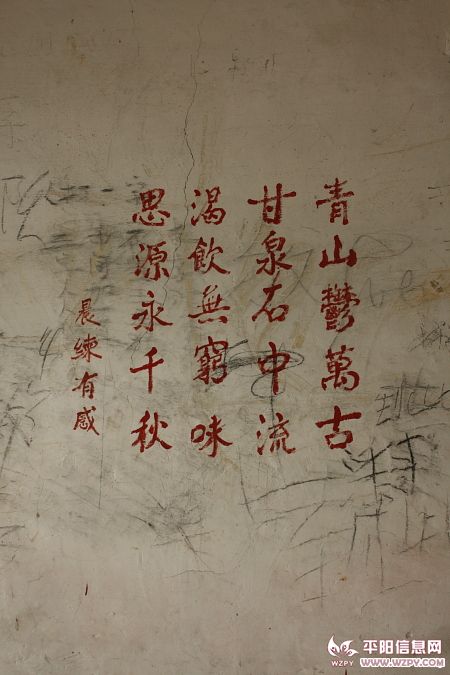 青山鬱萬古
甘泉石中流
渴飲無窮味
思源永千秋
晨練有感
平阳信息网
WZPY WWW.WZPY.COM